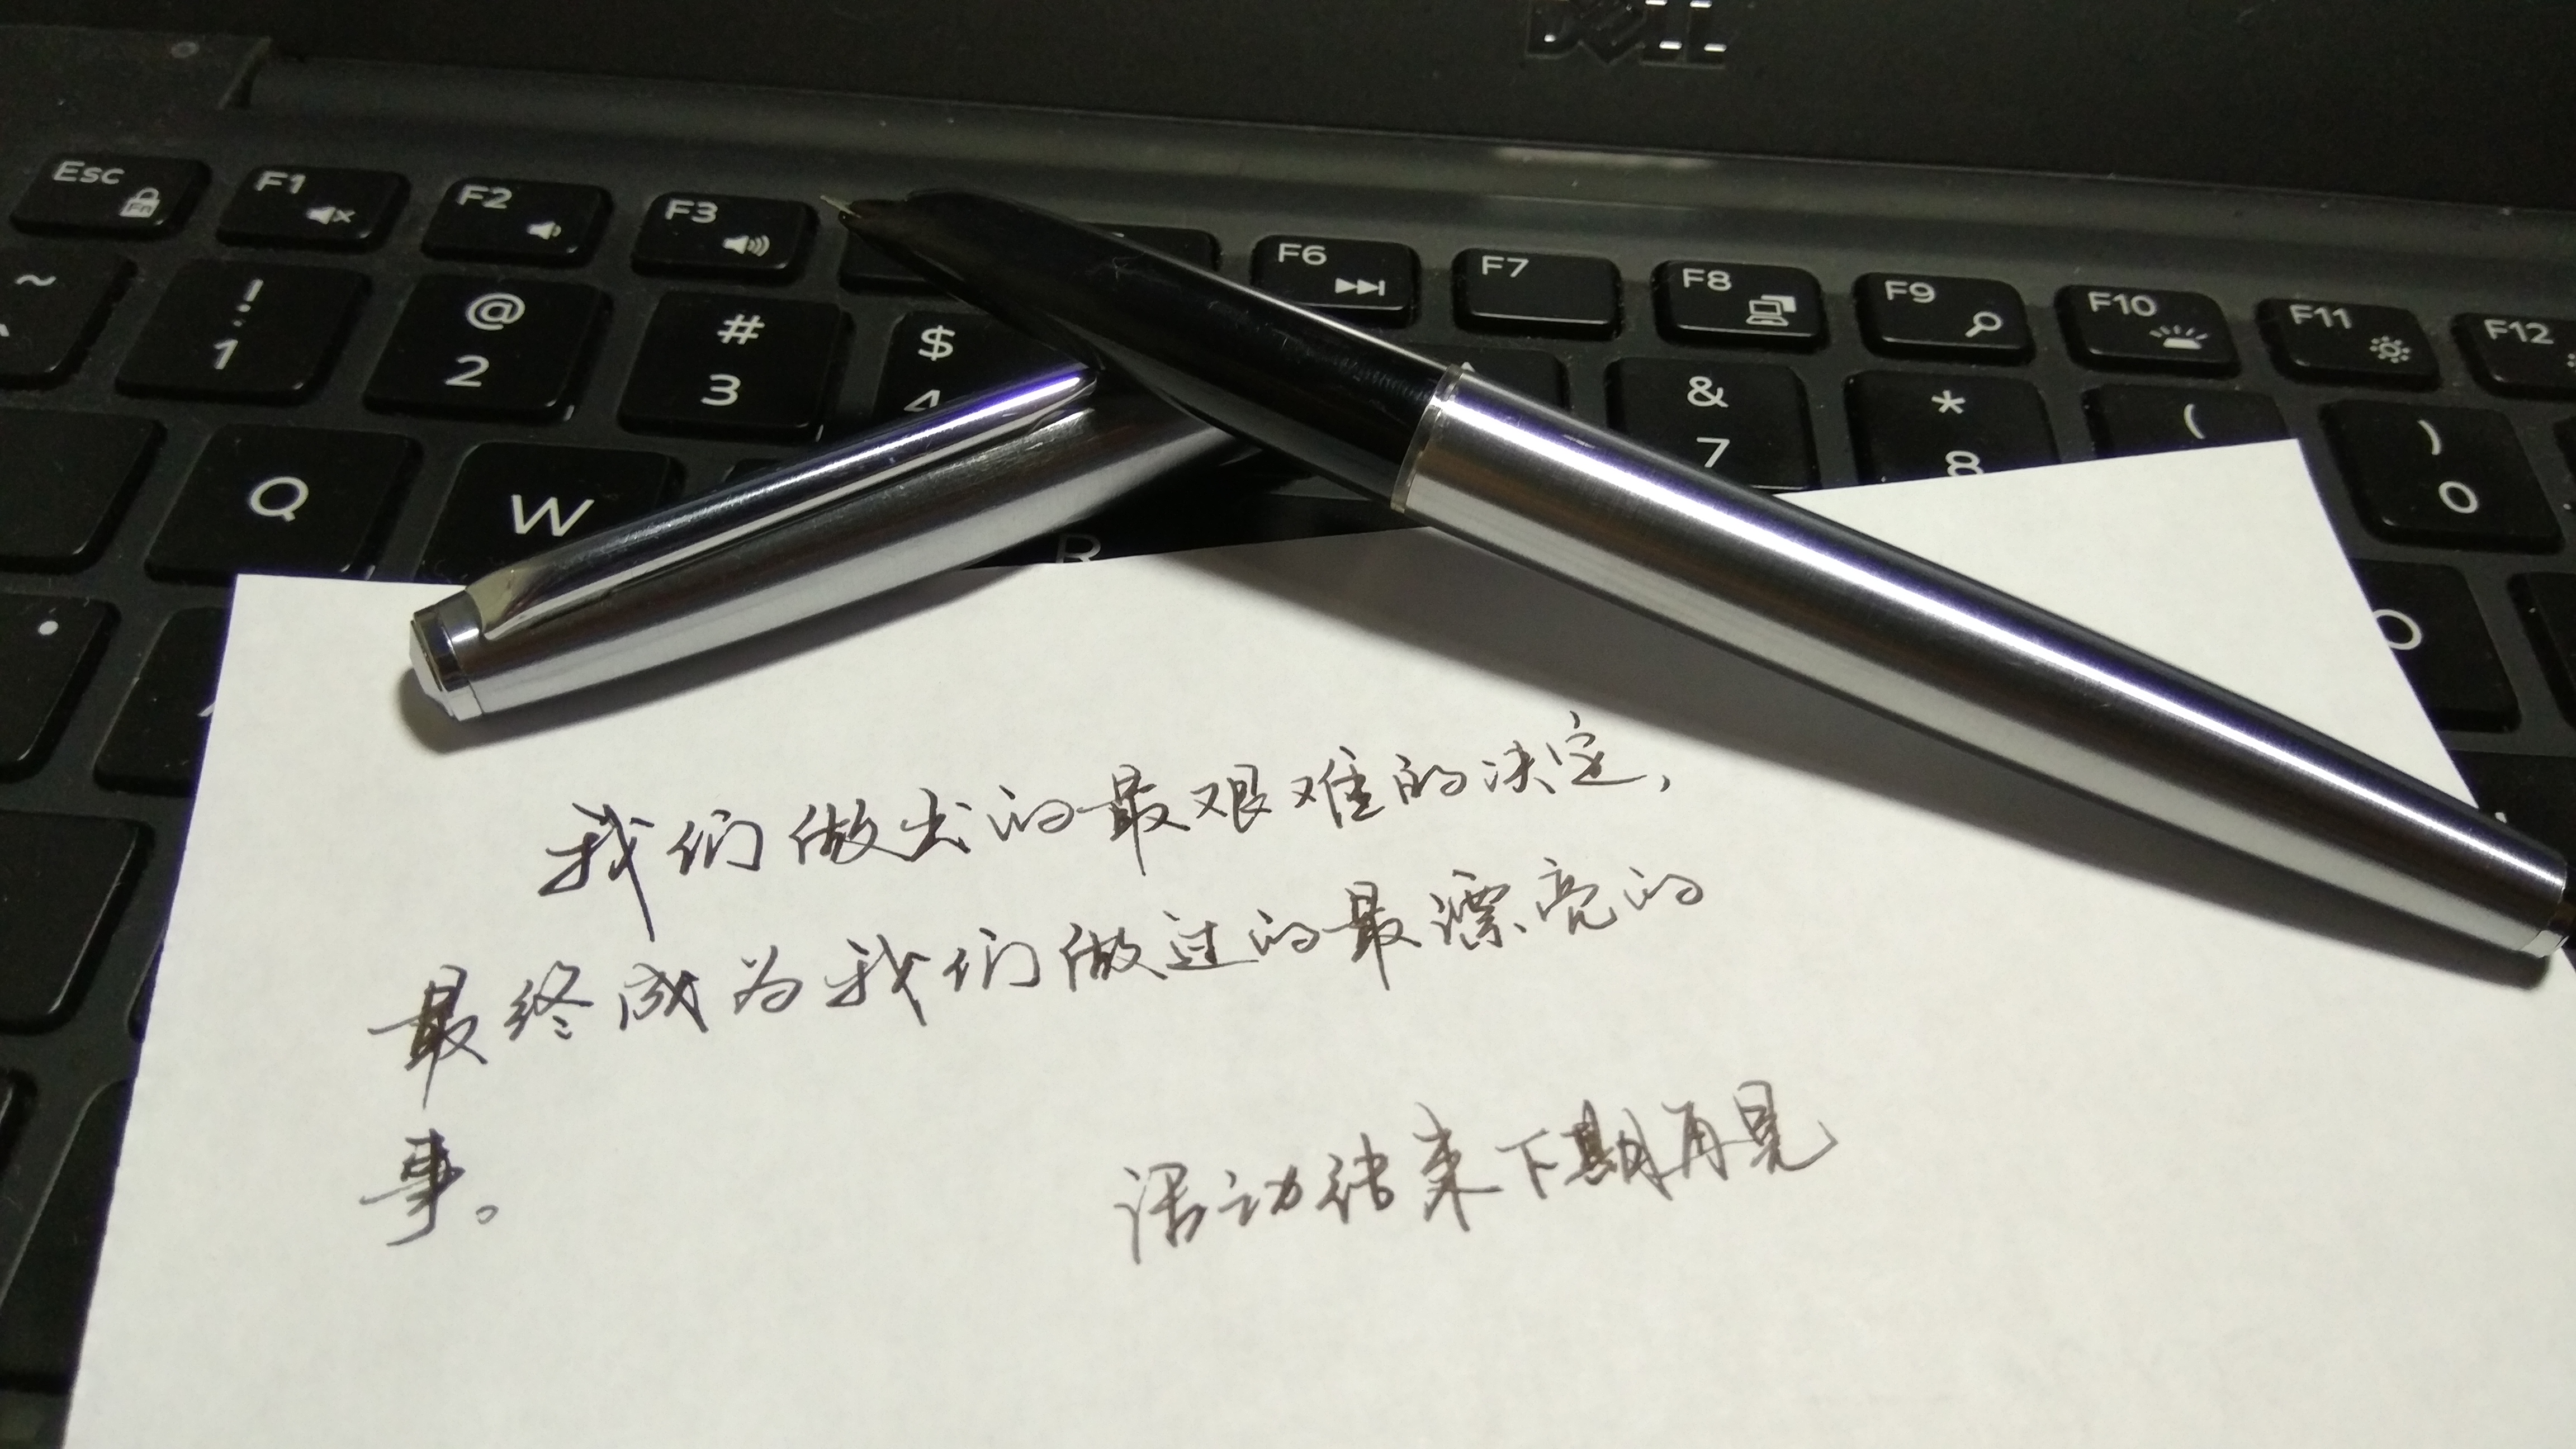 DELL
Esc Fn F1 F2 F3 F6 F7 F8 F9 F10 F11 F12
~ ! 1 @ 2 # 3 $ 4 & 7 * 8 ( ) 0
Q W R O
我们做出的最艰难的决定,
最终成为我们做过的最漂亮的
事。
活动结束下期再见